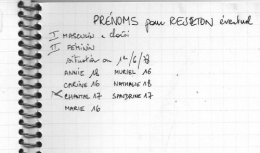 PRÉNOMS pour REJETON éventuel
I MASCULIN
II FÉMININ
situation au 1er/6/78
ANNIE 18 MURIEL 16
CARINE 16 NATHALIE 18
X CHANTAL 17 SANDRINE 17
MARIE 16